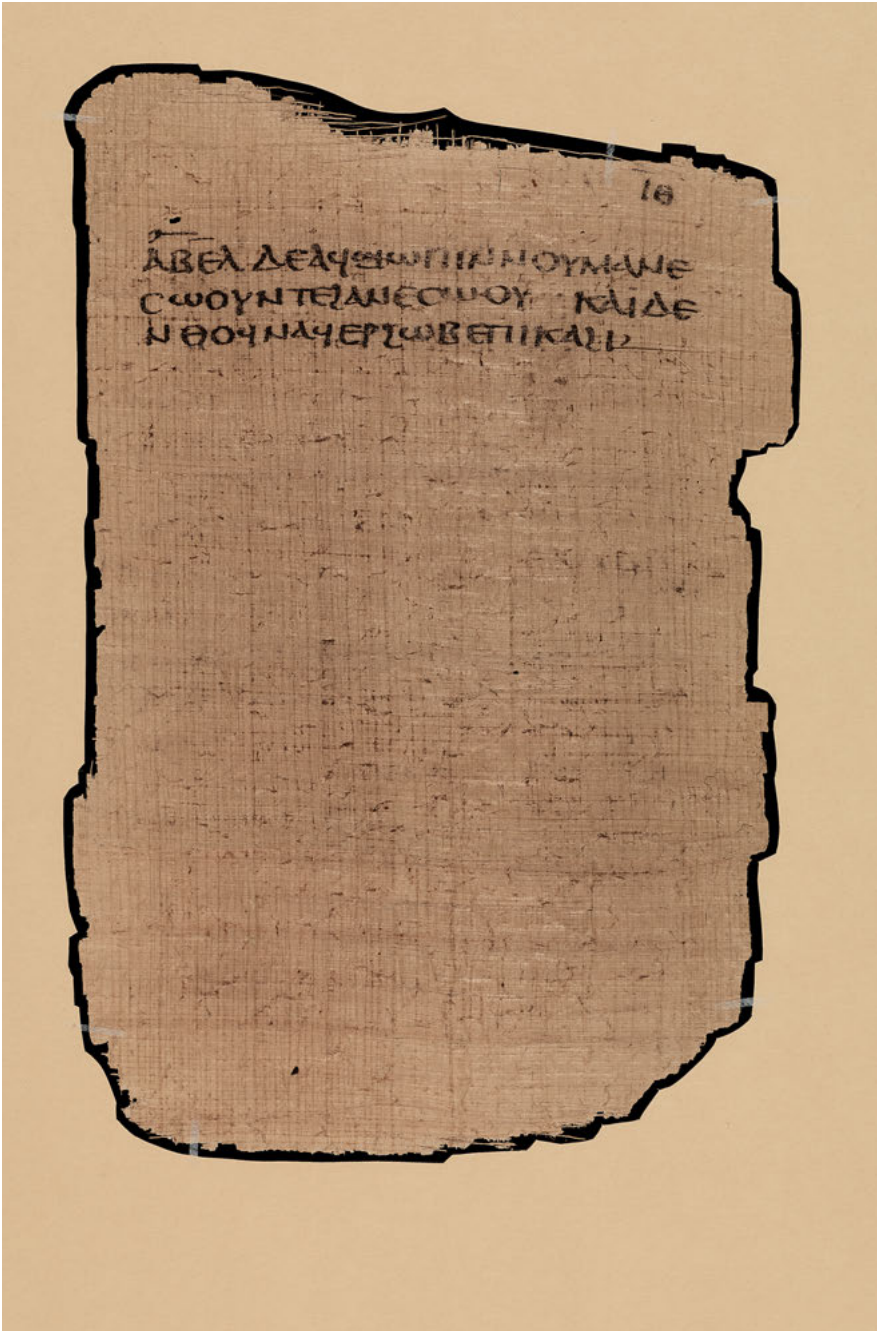 ⲓⲑ
ⲁⲃⲉⲗ ⲇⲉⲁϥϣⲱⲡⲓⲛⲛⲟⲩⲙⲁⲛⲉ
ⲥⲱⲟⲩⲛⲧⲉϩⲁⲛⲉⲥⲱⲟⲩ ⲕⲁⲓⲇⲉ
ⲛⲑⲟϥⲛⲁϥⲉⲣϩⲱⲃⲉⲡⲓⲕⲁϩⲓ